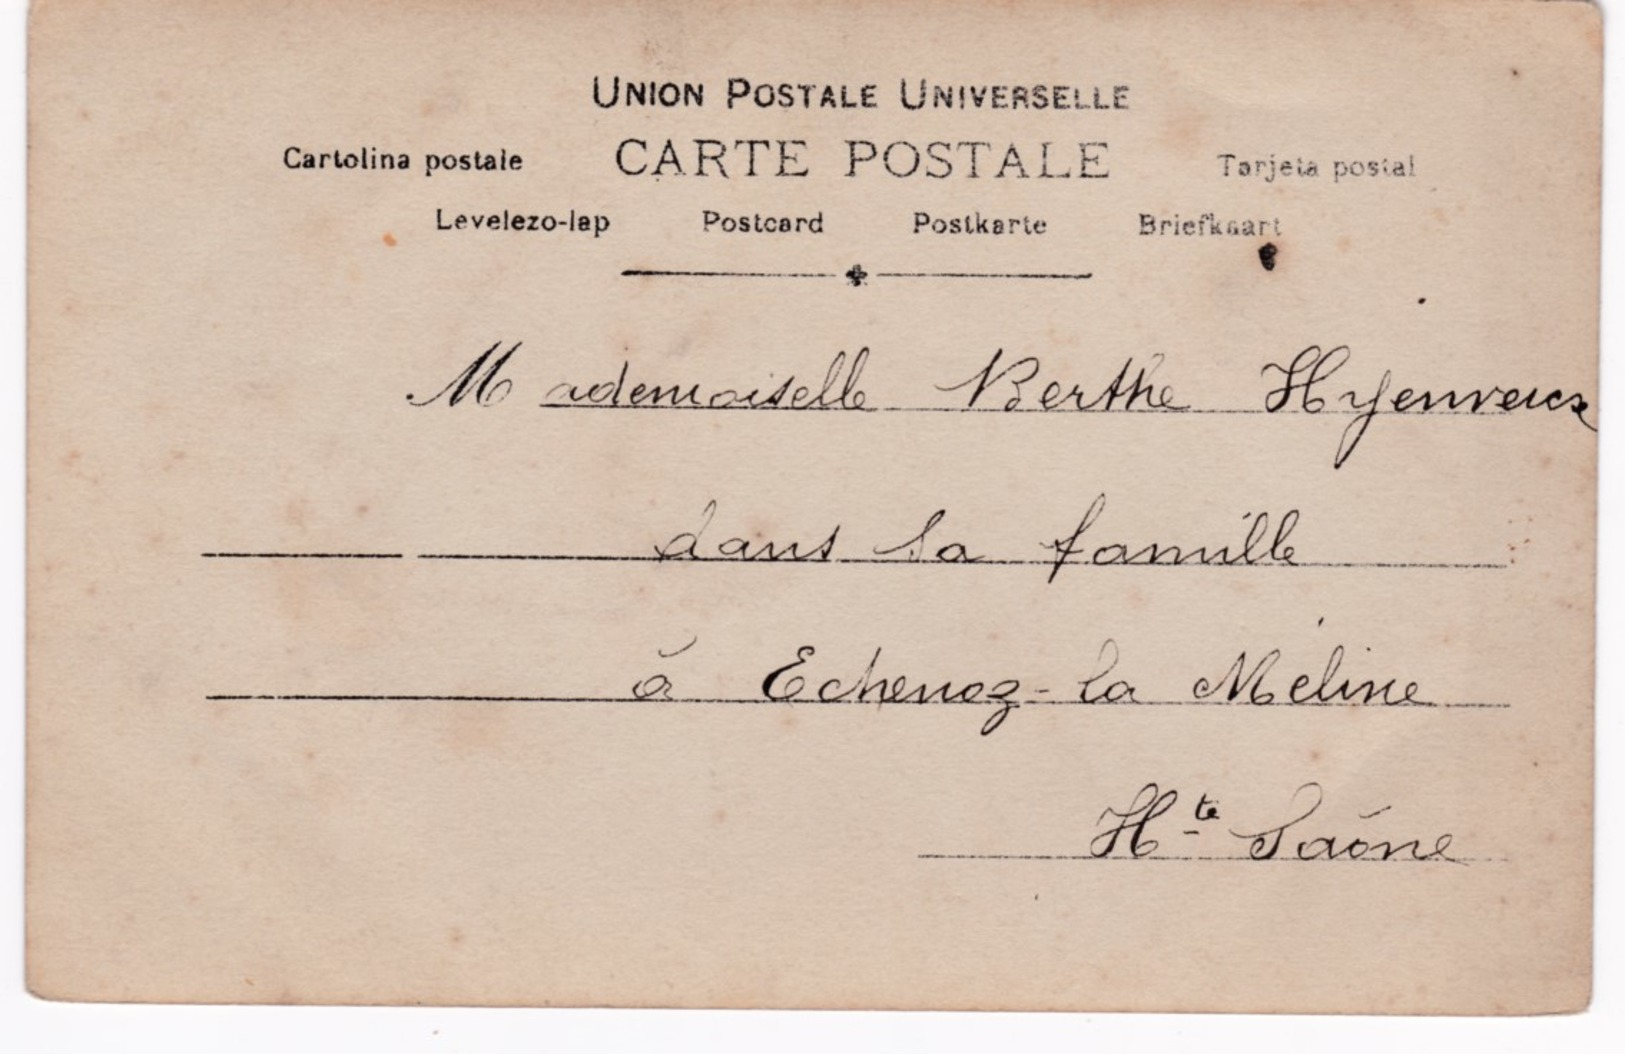 UNION POSTALE UNIVERSELLE
Cartolina postale CARTE POSTALE Tarjeta postal
Levelezo-lap Postcard Postkarte Briefkaart
Mademoiselle Berthe
dans sa famille
à Echenoz-la Méline
Hte Saône